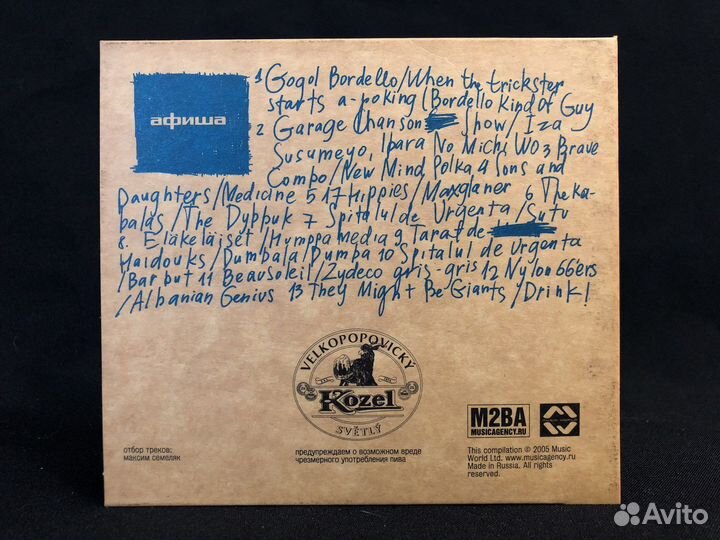 афиша
1 Gogol Bordello/When the trickster
starts a-poking (Bordello Kind Of Guy
2 Garage Chanson Show/Iza
Susumeyo, Ipara No Michi WO 3 Brave
Compo/New Mind Polka 4 Sons and
Daughters/Medicine 5 17 Hippies/Maxglaner 6 The Ka-
balas/The Dybbuk 7 Spitalul de Urgenta/Sutu
8. Eläkeläiset/Humppa Media 9 Taraf de
Haidouks/Dumbala Dumba 10 Spitalul de Urgenta
/Bar but 11 Beausoleil/Zydeco gris-gris 12 Nylon 66'ers
/Albanian Genius 13 They Might Be Giants/Drink!
VELKOPOPOVICKÝ
Kozel
SVĚTLÝ
M2BA
MUSICAGENCY.RU
отбор треков:
максим семеляк
предупреждаем о возможном вреде
чрезмерного употребления пива
This compilation © 2005 Music
World Ltd. www.musicagency.ru
Made in Russia. All rights
reserved.
Avito